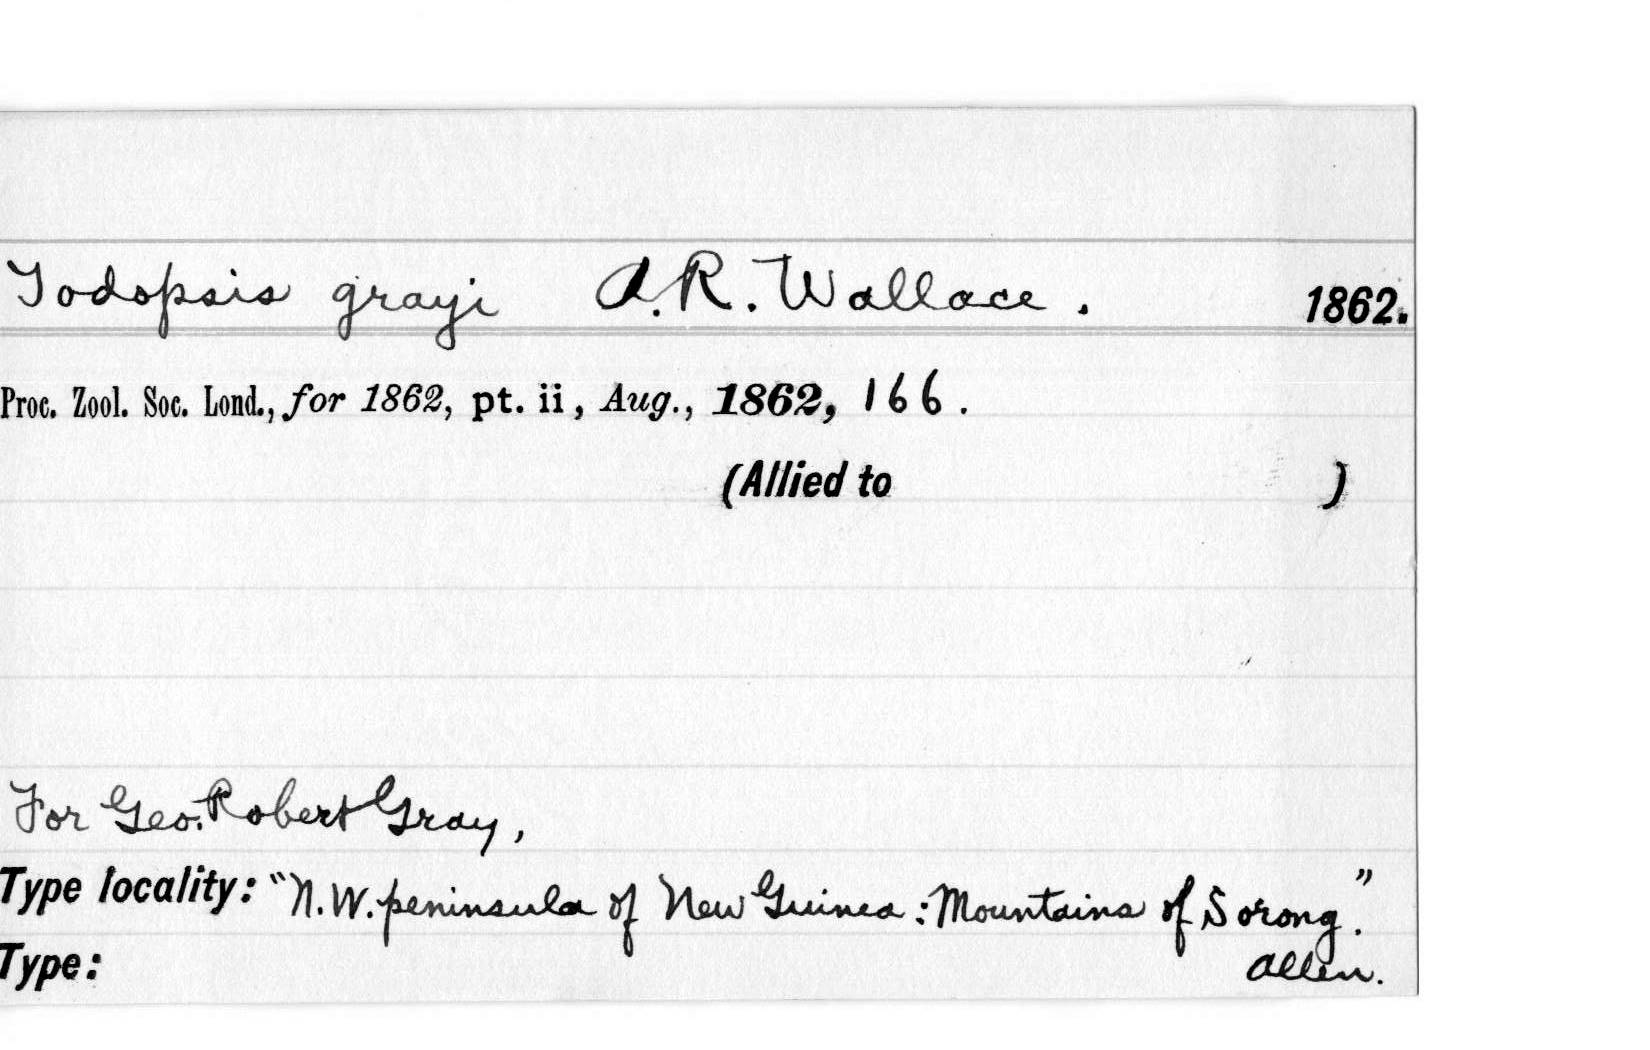 Todopsis grayi A.R. Wallace. 1862.
Proc. Zool. Soc. Lond., for 1862, pt. ii, Aug., 1862, 166.
(Allied to )
For Geo. Robert Gray,
Type locality: "N.W. peninsula of New Guinea: Mountains of Sorong."
Type: Allen.